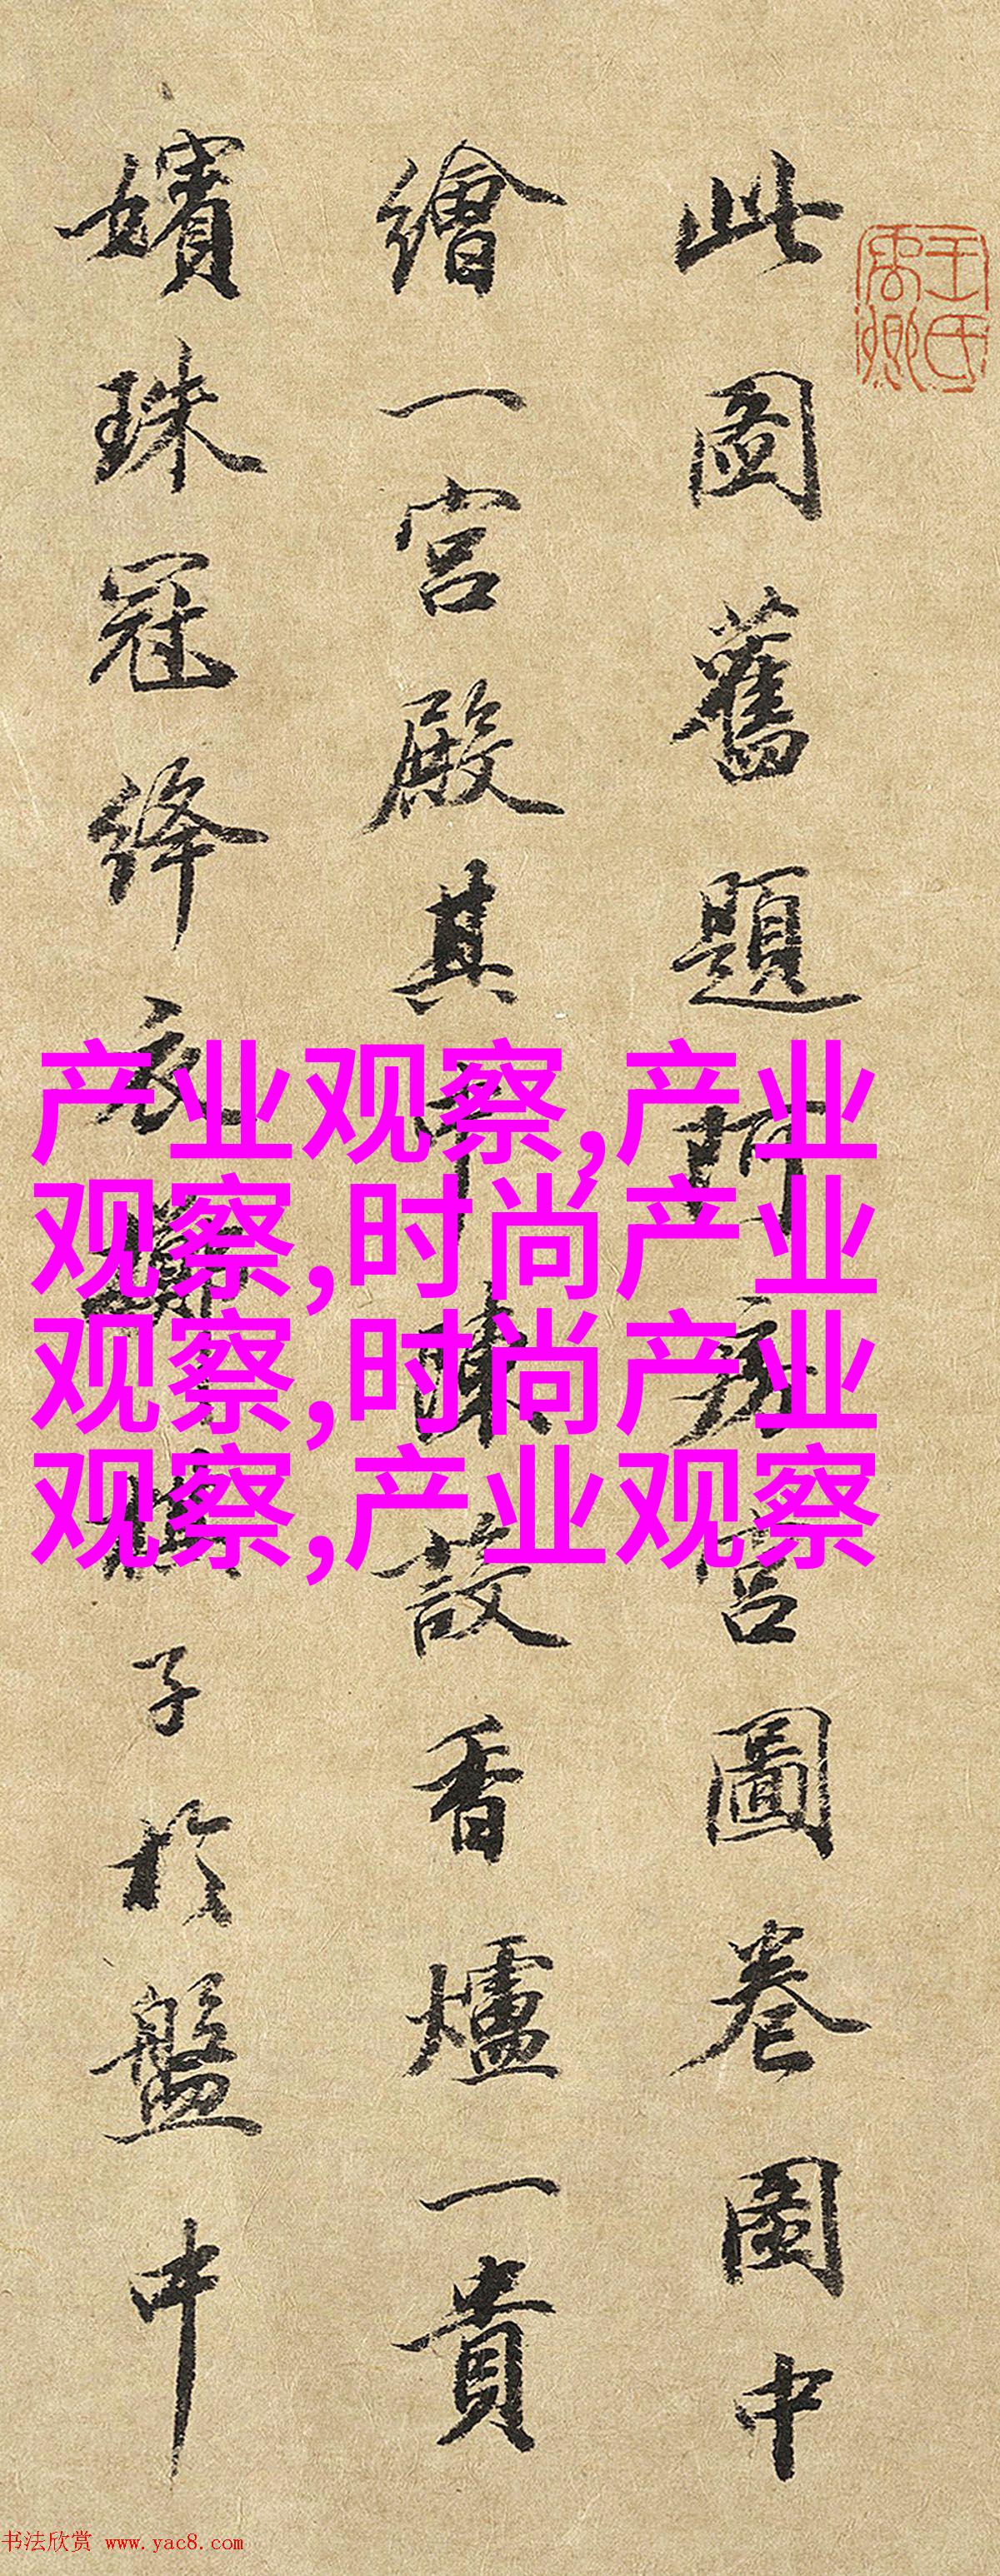 王氏禹卿
此圖舊題阿房宮圖卷圖中
繪一宮殿其中陳設香爐一貴
嬪珠冠絳衣子於盤中
产业观察,产业
观察,时尚产业
观察,时尚产业
观察,产业观察
书法欣赏 www.yac8.com